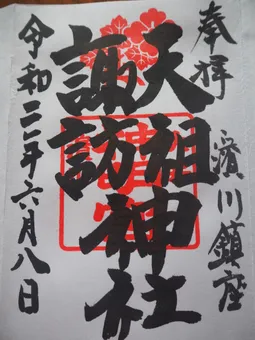 奉拝
濱川鎮座
天祖
諏訪
神社
令和三年六月八日